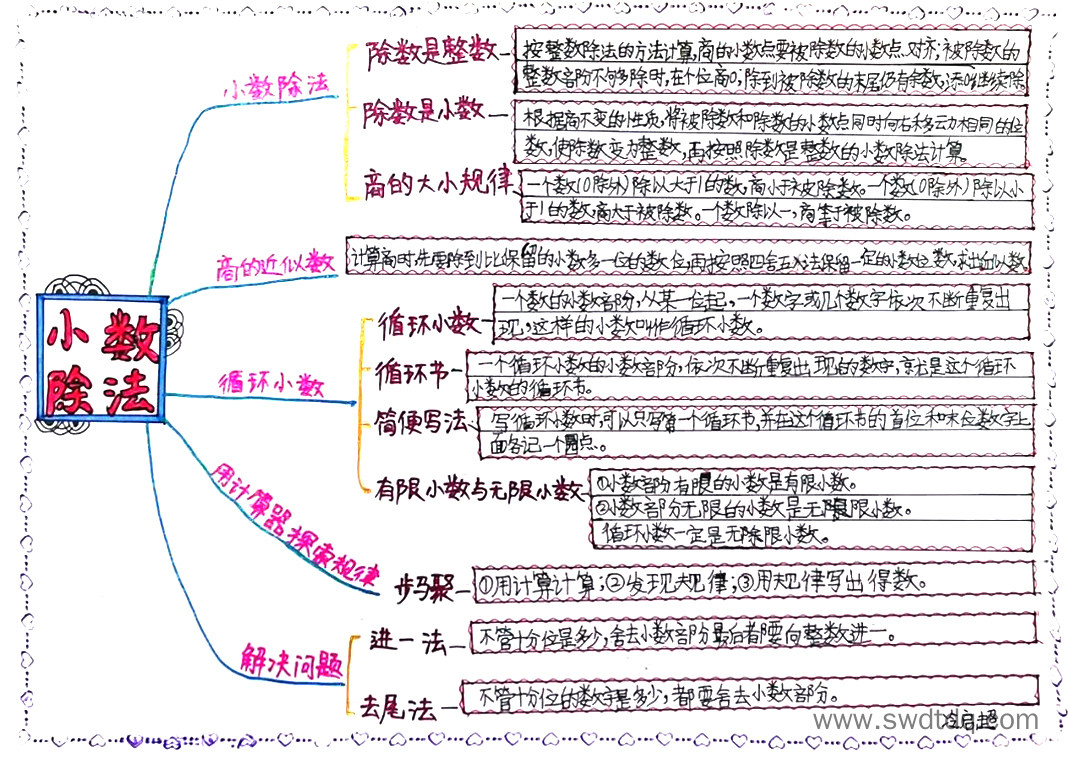 小数除法
小数除法
除数是整数
按整数除法的方法计算,商的小数点要被除数的小数点对齐,被除数的
整数部份不够除时,在个位商0;除到被除数的末尾仍有余数,添0继续除
除数是小数
根据商不变的性质,将被除数和除数的小数点同时向右移动相同的位
数,使除数变为整数,再按照除数是整数的小数除法计算。
商的大小规律
一个数(0除外)除以大于1的数,商小于被除数。一个数(0除外)除以小
于1的数,商大于被除数。一个数除以一,商等于被除数。
商的近似数
计算商时,先要除到比保留的小数多一位的数位,再按照四舍五入法保留一定的小数位数,求出近似数
循环小数
循环小数
一个数的小数部份,从某一位起,一个数字或几个数字依次不断重复出
现,这样的小数叫作循环小数。
循环节
一个循环小数的小数部份,依次不断重复出现的数字,就是这个循环
小数的循环节。
简便写法
写循环小数时,可以只写第一个循环节,并在这个循环节的首位和末位数字上
面各记一个圆点。
有限小数与无限小数
①小数部分有限的小数是有限小数。
②小数部分无限的小数是无限小数。
循环小数一定是无限小数。
用计算器探索规律
步骤
①用计算计算;②发现规律;③用规律写出得数。
解决问题
进一法
不管十分位是多少,舍去小数部分最后都要向整数进一。
去尾法
不管十分位的数字是多少,都要舍去小数部分。